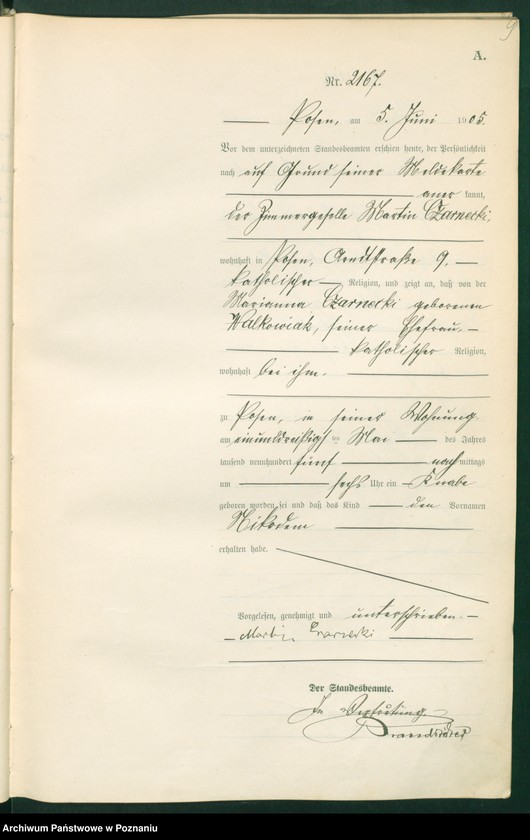 9
A.
Nr. 2167.
Posen, am 5. Juni 1905.
Vor dem unterzeichneten Standesbeamten erschien heute, der Persönlichkeit
nach auf Grund seiner Meldekarte
aner kannt,
der Zimmergeselle Martin Czarnecki,
wohnhaft in Posen, Arndtstraße 9,
katholischer Religion, und zeigt an, daß von der
Marianna Czarnecki geborenen
Walkowiak, seiner Ehefrau,
katholischer Religion,
wohnhaft bei ihm.
zu Posen, in seiner Wohnung
am einunddreißigsten Mai des Jahres
tausend neunhundert fünf nachmittags
um sechs Uhr ein Knabe
geboren worden sei und daß das Kind den Vornamen
Nikodem
erhalten habe.
Vorgelesen, genehmigt und unterschrieben
Martin Czarnecki
Der Standesbeamte.
In Vertretung.
Archiwum Państwowe w Poznaniu